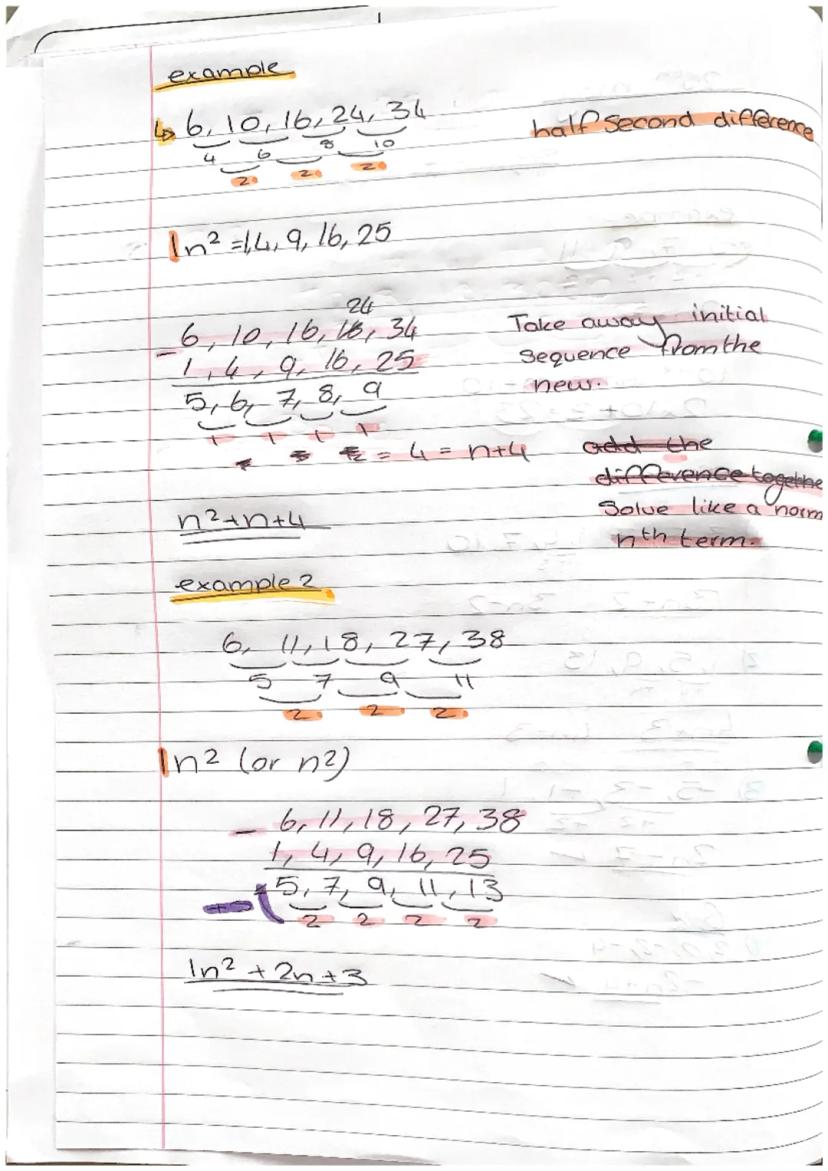 example
↳ 6, 10, 16, 24, 34
half second difference
4 6 8 10
2 2 2
1n² = 1,4, 9, 16, 25
24
6, 10, 16, 16, 34
- 1, 4, 9, 16, 25
5, 6, 7, 8, 9
1 1 1 1
Take away initial
sequence from the
new.
= 4 = n+4
add the
difference togethe
Solve like a norm
nth term.
n²+n+4
example 2
6, 11, 18, 27, 38
5 7 9 11
2 2 2
1n² (or n²)
- 6, 11, 18, 27, 38
1, 4, 9, 16, 25
5, 7, 9, 11, 13
2 2 2 2
1n² + 2n + 3